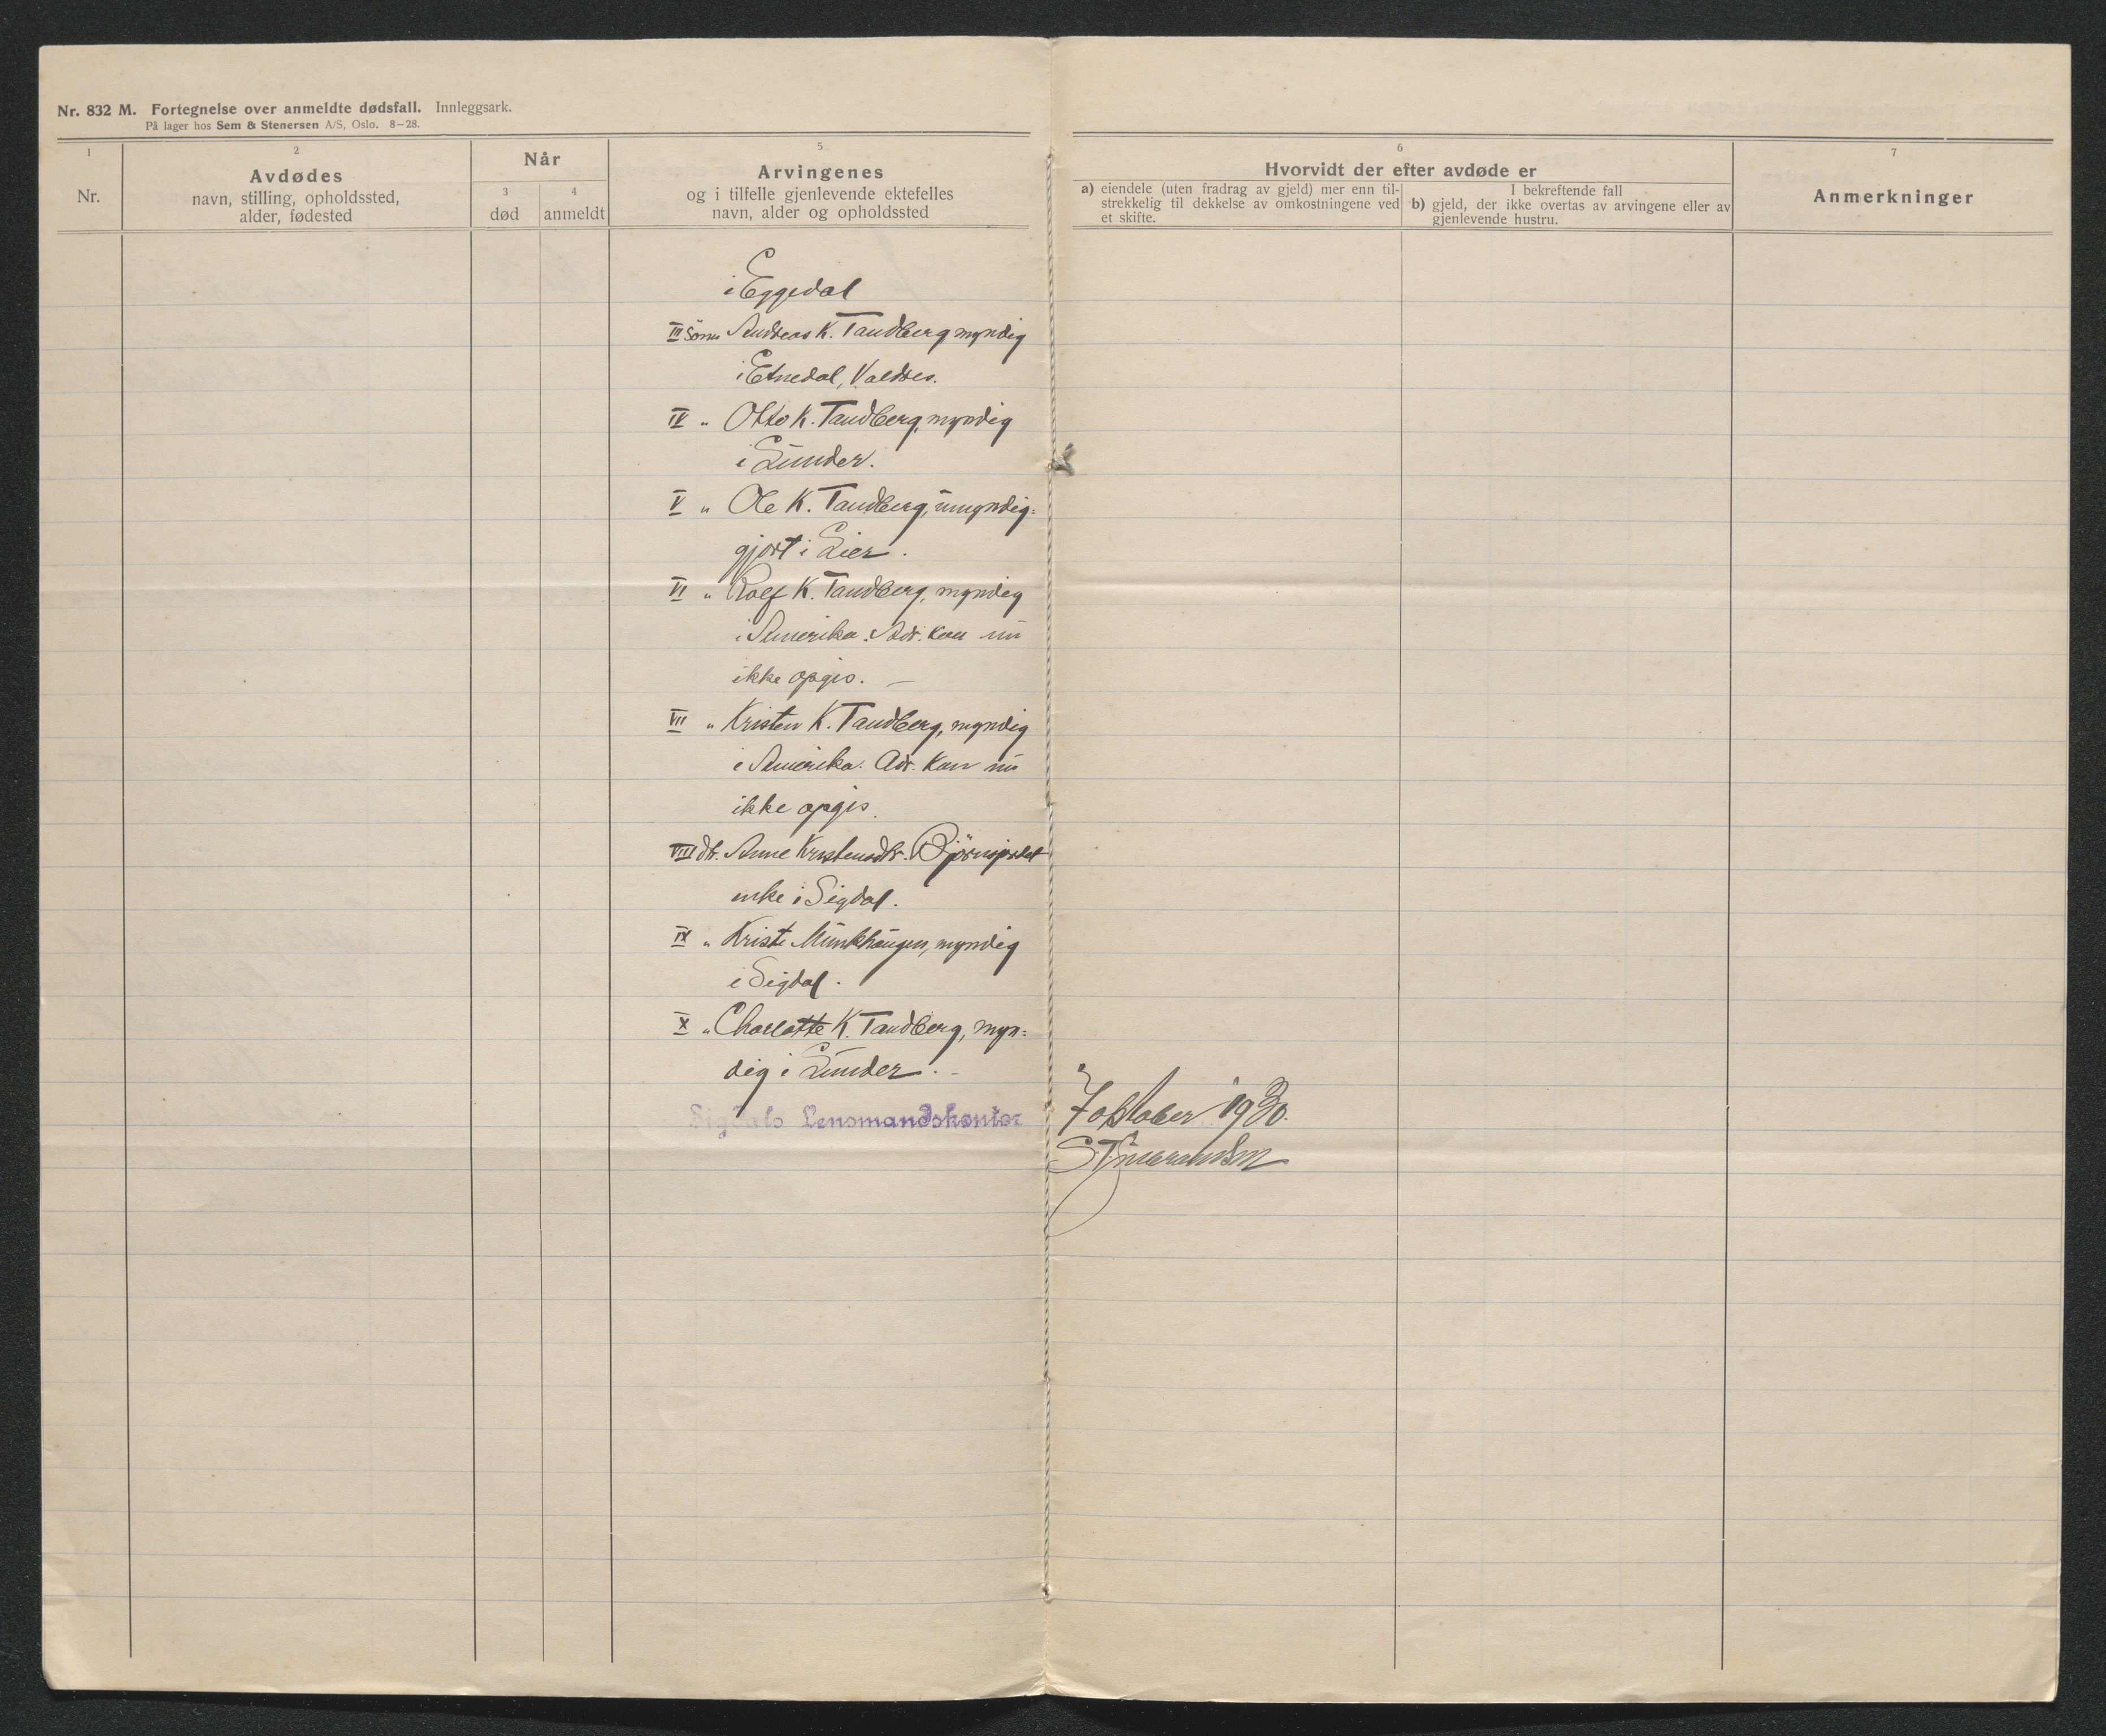 Nr. 832 M. Fortegnelse over anmeldte dødsfall. Innleggsark.
På lager hos Sem & Stenersen A/S, Oslo. 8—28.
1
Nr.
2
Avdødes
navn, stilling, opholdssted,
alder, fødested
Når
3
død
4
anmeldt
5
Arvingenes
og i tilfelle gjenlevende ektefelles
navn, alder og opholdssted
6
Hvorvidt der efter avdøde er
a) eiendele (uten fradrag av gjeld) mer enn til-
strekkelig til dekkelse av omkostningene ved
et skifte.
I bekreftende fall
b) gjeld, der ikke overtas av arvingene eller av
gjenlevende hustru.
7
Anmerkninger
i Eggedal
III Sönn Andreas K. Tandberg myndig
i Etnedal, Valdres.
IV " Otto K. Tandberg, myndig
i Lunder.
V " Ole K. Tandberg, umyndig=
gjort i Lier.
VI " Rolf K. Tandberg, myndig
i Amerika. Adr. kan nu
ikke opgis. —
VII " Kristen K. Tandberg, myndig
i Amerika. Adr. kan nu
ikke opgis.
VIII dtr. Anne Kristensdtr.
enke i Sigdal.
IX " Kristi Munkhaugen, myndig
i Sigdal.
X " Charlotte K. Tandberg, myn=
dig i Lunder. -
Sigdals Lensmandskontor 7 oktober 1930.